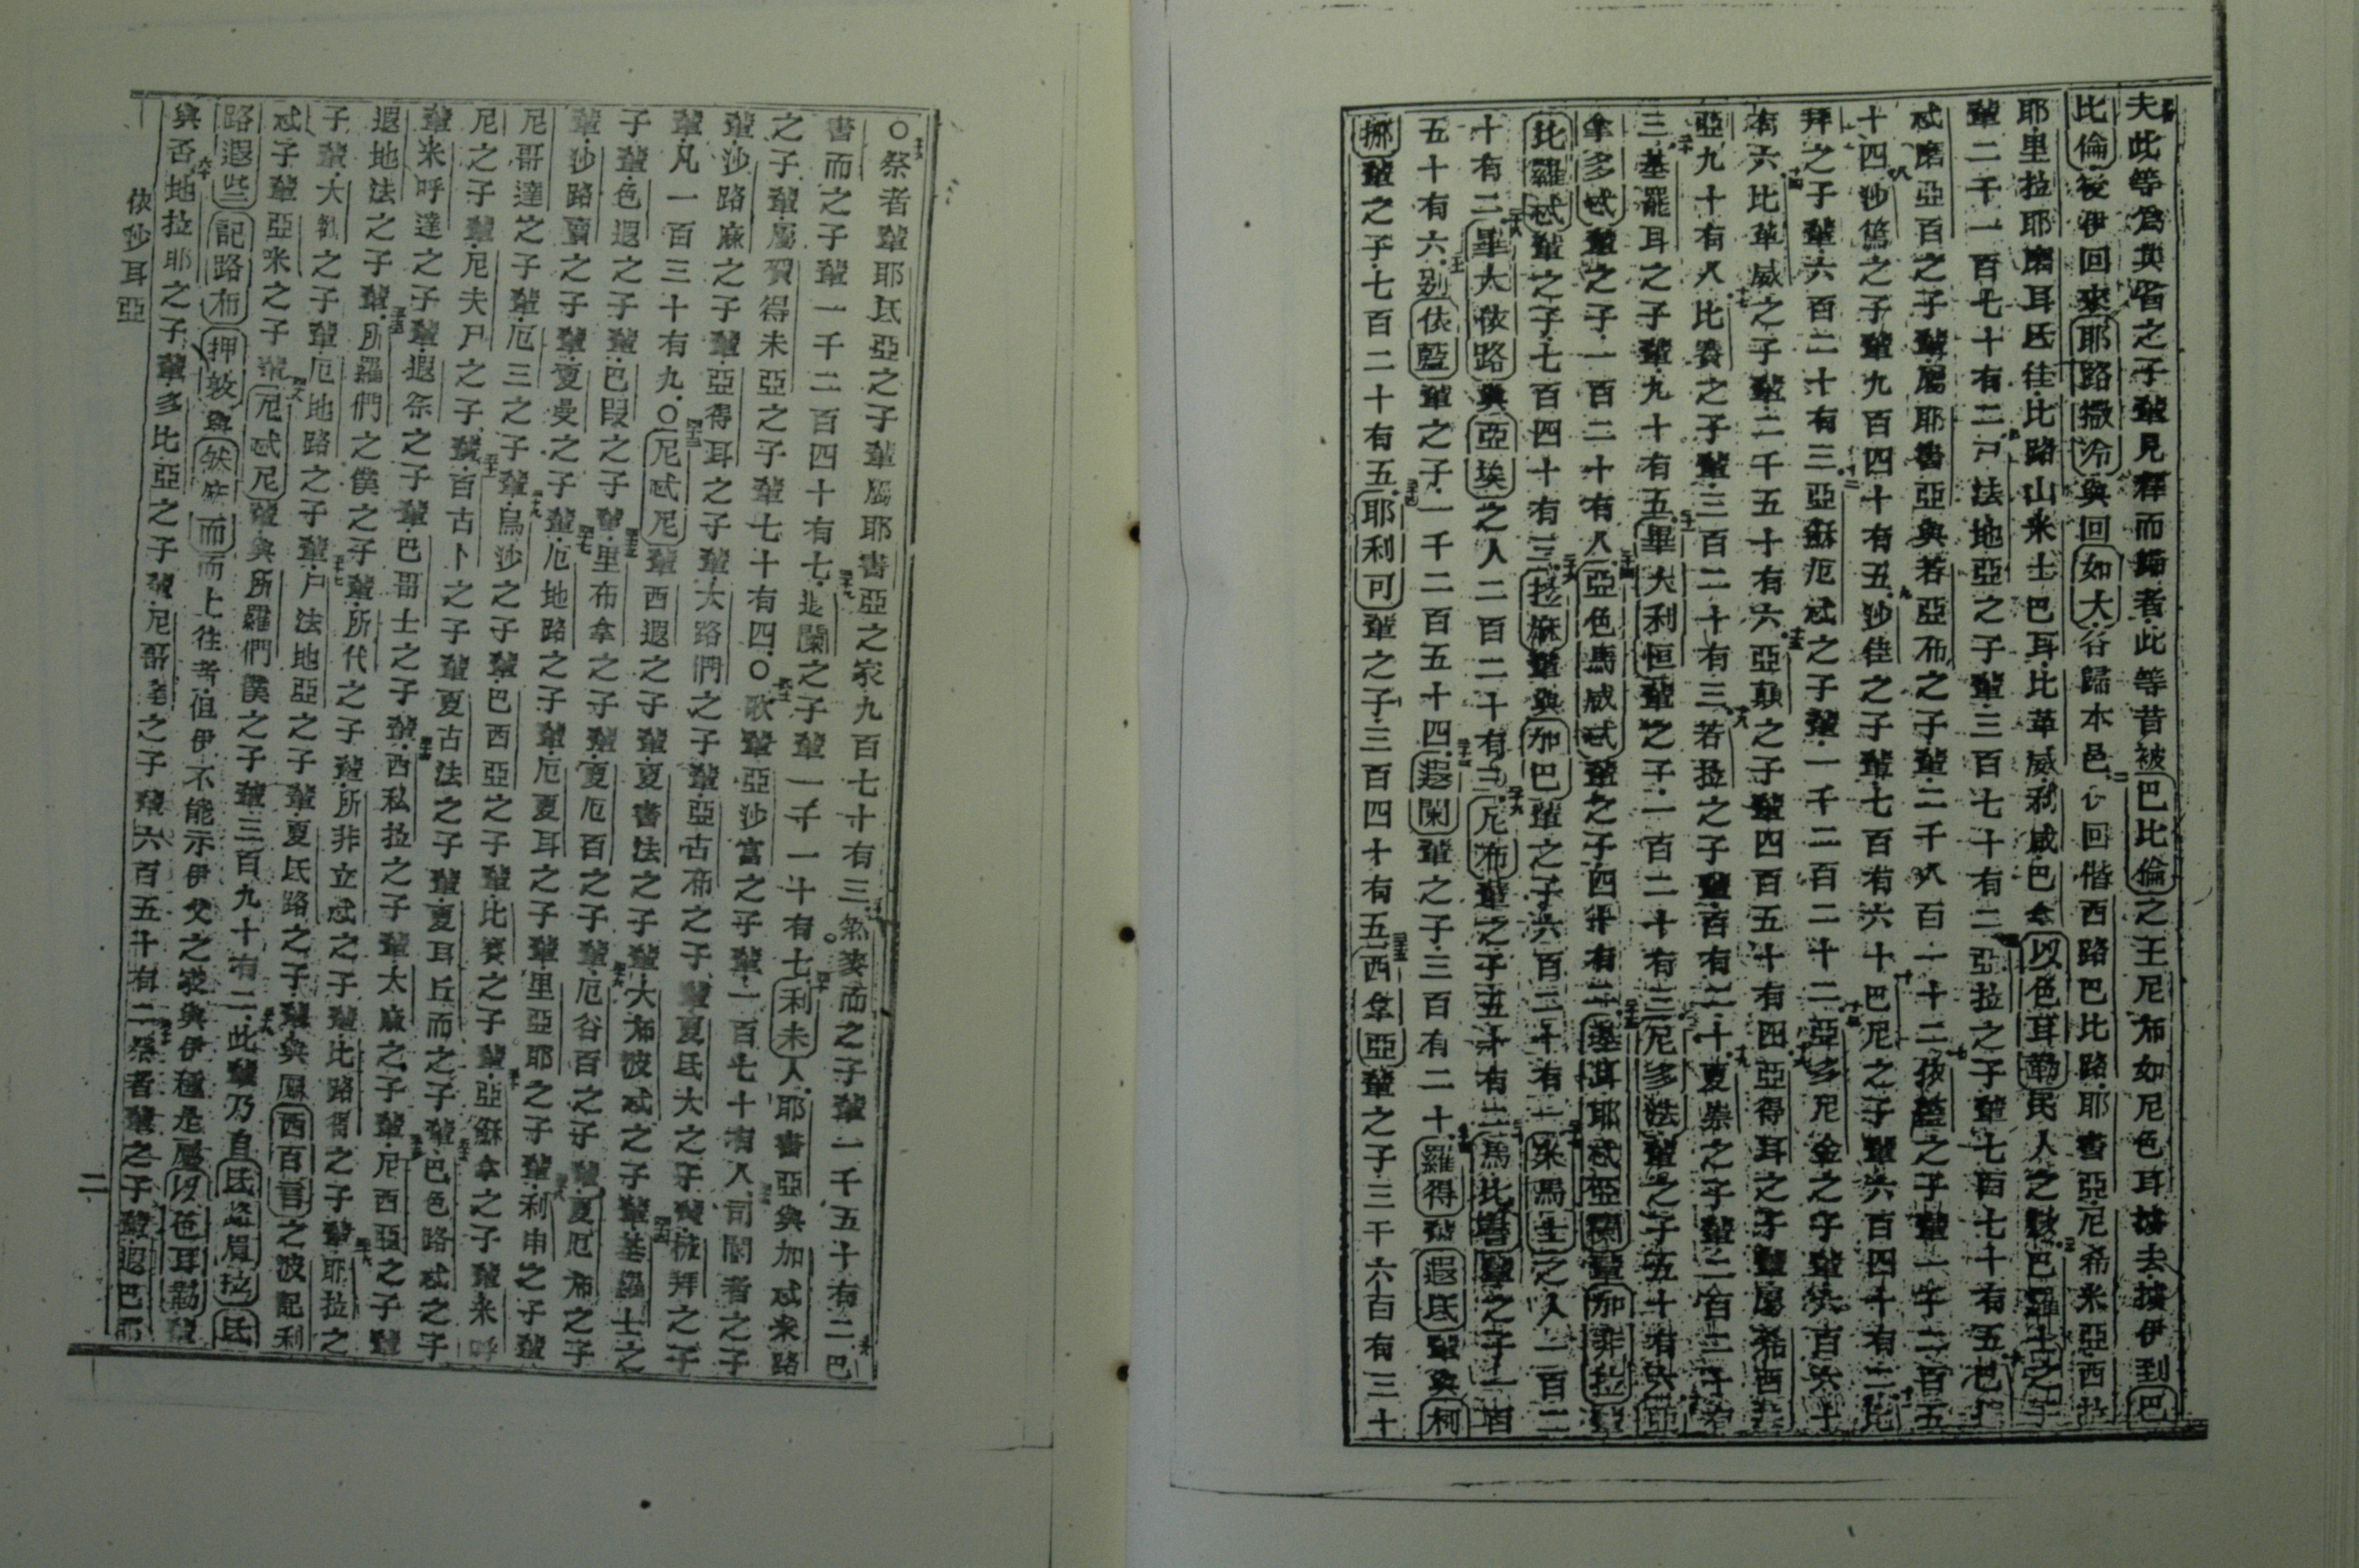 夫此等爲其省之子輩見釋而歸者此等昔被巴比倫之王尼布如尼色耳擄去擄伊到巴
比倫後伊回來耶路撒冷與回如大各歸本邑伊回偕西路巴比路耶書亞尼希米亞西拉
耶里拉耶磨耳氐佳比路山米士巴耳比革威利咸巴拿以色耳勒民人之數巴羅士之子
輩二千一百七十有二尸法地亞之子輩三百七十有二亞拉之子輩七百七十有五巴
忒磨亞百之子輩屬耶書亞與若亞布之子輩二千八百一十二依藍之子輩一千二百五
十四沙篤之子輩九百四十有五沙佳之子輩七百有六十巴尼之子輩六百四十有二比
拜之子輩六百二十有三亞穌厄忒之子輩一千二百二十二亞多尼金之子輩六百六十
有六比革威之子輩二千五十有六亞顛之子輩四百五十有四亞得耳之子輩屬希西
亞九十有八比賽之子輩三百二十有三若拉之子輩百有二十夏崇之子輩二百二十有
三基罷耳之子輩九十有五畢大利恒輩之子一百二十有三尼多法輩之子五十有六亞
拿多忒輩之子一百二十有八亞色馬威忒輩之子四十有二基耳耶忒亞蘭輩加非拉輩
比羅忒輩之子七百四十有三拉麻輩與加巴輩之子六百二十有一米馬士之人一百二
十有二畢大依路與亞埃之人二百二十有三尼布輩之子五十有二馬比書輩之子一百
五十有六別依藍輩之子一千二百五十四遐闌輩之子三百有二十羅得輩遐氐輩與柯
挪輩之子七百二十有五耶利可輩之子三百四十有五西拿亞輩之子三千六百有三十
○祭者輩耶氐亞之子輩屬耶書亞之家九百七十有三氣麥而之子輩一千五十有二巴
書而之子輩一千二百四十有七遐闌之子輩一千一十有七利未人耶書亞與加忒米路
之子輩屬賀得未亞之子輩七十有四○歌輩亞沙富之子輩一百七十有八司閽者之子
輩沙路麻之子輩亞得耳之子輩大路們之子輩亞古布之子輩夏氐大之子輩梳拜之子
輩凡一百三十有九○尼忒尼輩西遐之子輩夏書法之子輩大布波忒之子輩基羅士之
子輩色遐之子輩巴段之子輩里布拿之子輩夏厄百之子輩厄谷百之子輩夏厄布之子
輩沙路賣之子輩夏曼之子輩厄地路之子輩厄夏耳之子輩里亞耶之子輩利申之子輩
尼哥達之子輩厄三之子輩烏沙之子輩巴西亞之子輩比賽之子輩亞穌拿之子輩米呼
尼之子輩尼夫尸之子輩百古卜之子輩夏古法之子輩夏耳丘而之子輩巴色路忒之子
輩米呼達之子輩遐奈之子輩巴哥士之子輩西私拉之子輩大麻之子輩尼西亞之子輩
遐地法之子輩所羅們之僕之子輩所代之子輩所非立忒之子輩比路得之子輩耶拉之
子輩大彀之子輩厄地路之子輩尸法地亞之子輩夏氐路之子輩與屬西百音之波記利
忒子輩亞米之子輩尼忒尼輩與所羅們僕之子輩三百九十有二此輩乃自氐路眉拉氐
路遐些記路布押敦與然麻而而上往者但伊不能示伊父之家與伊種是屬以色耳勒輩
與否地拉耶之子輩多比亞之子輩尼哥達之子輩六百五十有二祭者輩之子輩遐巴耶
依沙耳亞
二